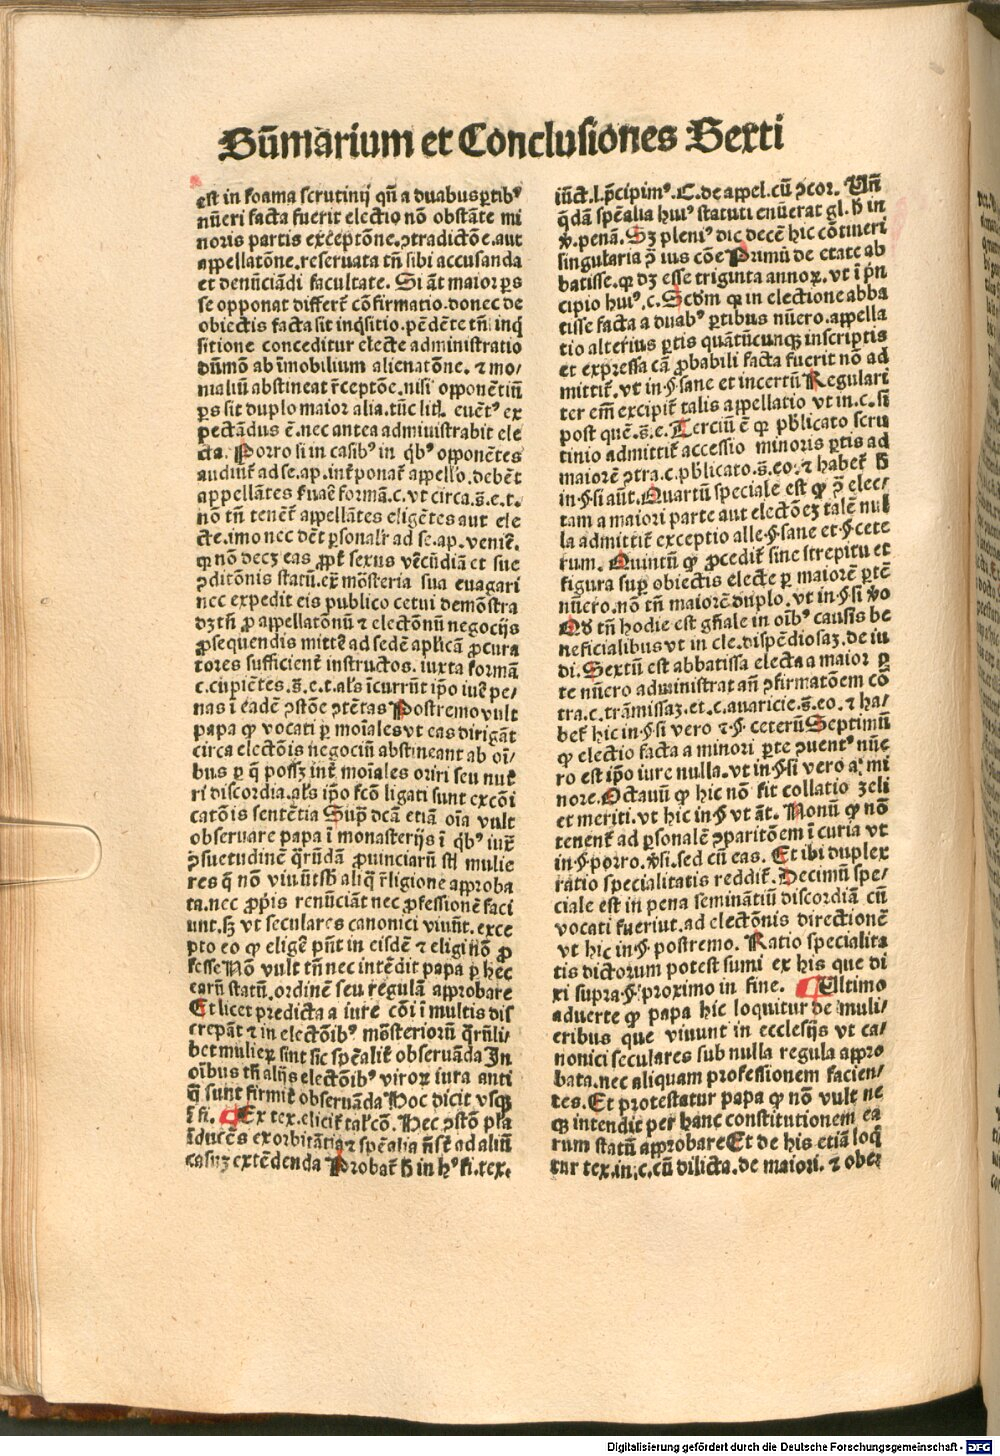 Sūmarium et Conclusiones Sexti
est in foama scrutinij qn̄ a duabusꝑtibꝰ
nūeri facta fuerit electio nō obstāte mi
noris partis exceptōne.ↄtradictōe.aut
appellatōne.reseruata tn̄ sibi accusanda
et denūciādi facultate. Si āt maior ps
se opponat differt̄ cōfirmatio.donec de
obiectis facta sit inq̄sitio.pēdēte tn̄ inq̄
sitione conceditur electe administratio
dūmō ab īmobilium alienatōne. ⁊ mo/
maliū abstineat r̄ceptōe.nisi opponētiū
ꝑs sit duplo maior alia.tūc lit̄. euētꝰ ex
pectādus ē.nec antea admiuistrabit ele
cta. Porro si in casibꝰ in q̄bꝰ opponētes
audiūt̄ ad se.ap.int̄ponat̄ appello.debēt
appellātes ẜuaē formā.c.vt circa.s̄.e.t.
nō tn̄ tenēt̄ appellātes eligētes aut ele
cte.imo nec dēt ꝑsonalr̄ ad se.ap.veniē.
ꝙ nō decꝫ eas ꝓpt̄ sexus vēcūdiā et sue
ↄditōnis statū.ex mōsteria sua euagari
nec expedit eis publico cetui demōstra
dꝫ tn̄ ꝓ appellatōnū ⁊ electōnū negocijs
ꝓsequendis mitte ad sedē aplicā ꝓcura
tores sufficient̄ instructos. iuxta formā
c.cupiētes.s̄.e.t.als īcurrūt ip̄o iuē pe/
nas ī eadē ↄstōe ↄtētas Postremo vult
papa ꝙ vocati ꝑ moīales vt eas dirigāt
circa electōis negociū abstineant ab oī/
bus ꝑ q̄ possꝫ int̄ moīales oriri seu nut̄
ri discordia.als ip̄o fcō ligati sunt excōi
catōis sentētia Supͣ dc̄ā etiā oīa vult
obseruare papa ī monasterijs ī q̄bꝰ iuxͣ
ↄsuetudinē q̄rūdā ꝓuinciarū stī mulie
res q̄ nō viuūt sb̄ aliq̄ r̄ligione approba
ta.nec ꝓpͥs renūciāt nec ꝓfessionē faci
unt.sꝫ vt seculares canonici viuūt.exce
pto eo ꝙ eligē pn̄t in eisdē ⁊ eligi nō ꝓ
fesse Nō vult tn̄ nec intēdit papa ꝑ hec
earū statū.ordinē seu regulā approbare
Et licet predicta a iure cōi ī multis dis
crepāt ⁊ in electōibꝰ mōsteriorū q̄rūli/
bet mulieꝝ sint sic spēalit̄ obseruāda In
oībus tn̄ alijs electōibꝰ viroꝝ iura anti
q̄ sunt firmit̄ obseruāda Hoc dicit vsqꝫ
ī fi. Ex tex.elicit̄ talꝭ cō. Hec ↄstō pla
īducēs exorbitātia ⁊ spēalia n̄ sēt̄ ad aliū
casuꝫ extēdenda Probat̄ h̄ in hꝰ fi.tex.
iūct.l.p̄cipimꝰ.C.de appel.cū ↄcor. Vn̄
q̄dā spēalia huiꝰ statuti enūerat gl. h̄ in
ꝟ.penā. Sꝫ pleniꝰ dic decē hic cōtineri
singularia p̄ ius cōe Primū de etate ab
batisse.ꝙ dꝫ esse triginta annoꝝ. vt ī pn̄
cipio huiꝰ.c. Scdm ꝙ in electione abba
tisse facta a duabꝰ ꝑtibus nūero.appella
tio alterius ꝑtis quātūcunqꝫ inscriptis
et expressa cā ꝓbabili facta fuerit nō ad
mittit̄.vt in.§.sane et incertū Regulari
ter em̄ excipit̄ talis appellatio vt in.c.si
post quē.s̄.e. Terciū ē ꝙ pb̄licato scru
tinio admittit̄ accessio minoris ꝑtis ad
maiorē ↄtra.c.pb̄licato.s̄.eo.⁊ habet̄ h̄
in.§.si aūt. Quartū speciale est ꝙ p̄ elec/
tam a maiori parte aut electōeꝫ talē nul
la admittit̄ exceptio alle.§.sane et.§.cete
rum. Quintū ꝙ ꝓcedit̄ sine strepitu et
figura sup obiectis electe ꝑ maiorē ꝑtē
nūero.nō tn̄ maiorē duplo.vt in.§.si ꝟo
Qd̄ tn̄ hodie est gn̄ale in oībꝰ causis be
neficialibus vt in cle.dispēdiosaꝫ.de iu
di. Sextū est abbatissa electa a maior ꝑ
te nūero administrat añ ↄfirmatōem cō
tra.c.trāmissaꝫ.et.c.auaricie.s̄.eo. ⁊ ha/
bet̄ hic in.§.si vero ⁊.§. ceterū Septimū
ꝙ electio facta a minori ꝑte ↄuentꝰ nūe
ro est ip̄o iure nulla.vt in.§.si vero a mi
nore. Octauū ꝙ hic nō fit collatio zeli
et meriti.vt hic in.§ vt āt. Nonū ꝙ nō
tenent̄ ad ꝑsonalē ↄparitōem ī curia vt
in.§.porro.ꝟsi.sed cū eas. Et ibi duplex
ratio specialitatis reddit̄. Decimū spe/
ciale est in pena seminātiū discordiā cū
vocati fueriut.ad electōnis directionē
vt hic in.§ postremo. Ratio specialita
tis dictorum potest sumi ex his que di
xi supra.§.proximo in fine. Vltimo
aduerte ꝙ papa hic loquitur de muli/
eribus que viuunt in ecclesijs vt ca/
nonici seculares sub nulla regula appro
bata.nec aliquam professionem facien/
tes. Et protestatur papa ꝙ nō vult ne
qꝫ intendit per hanc constitutionem ea
rum statū approbare Et de his etiā loq̄
tur tex.in.c.cū dilicta.de maiori. ⁊ obe/
Digitalisierung gefördert durch die Deutsche Forschungsgemeinschaft - DFG